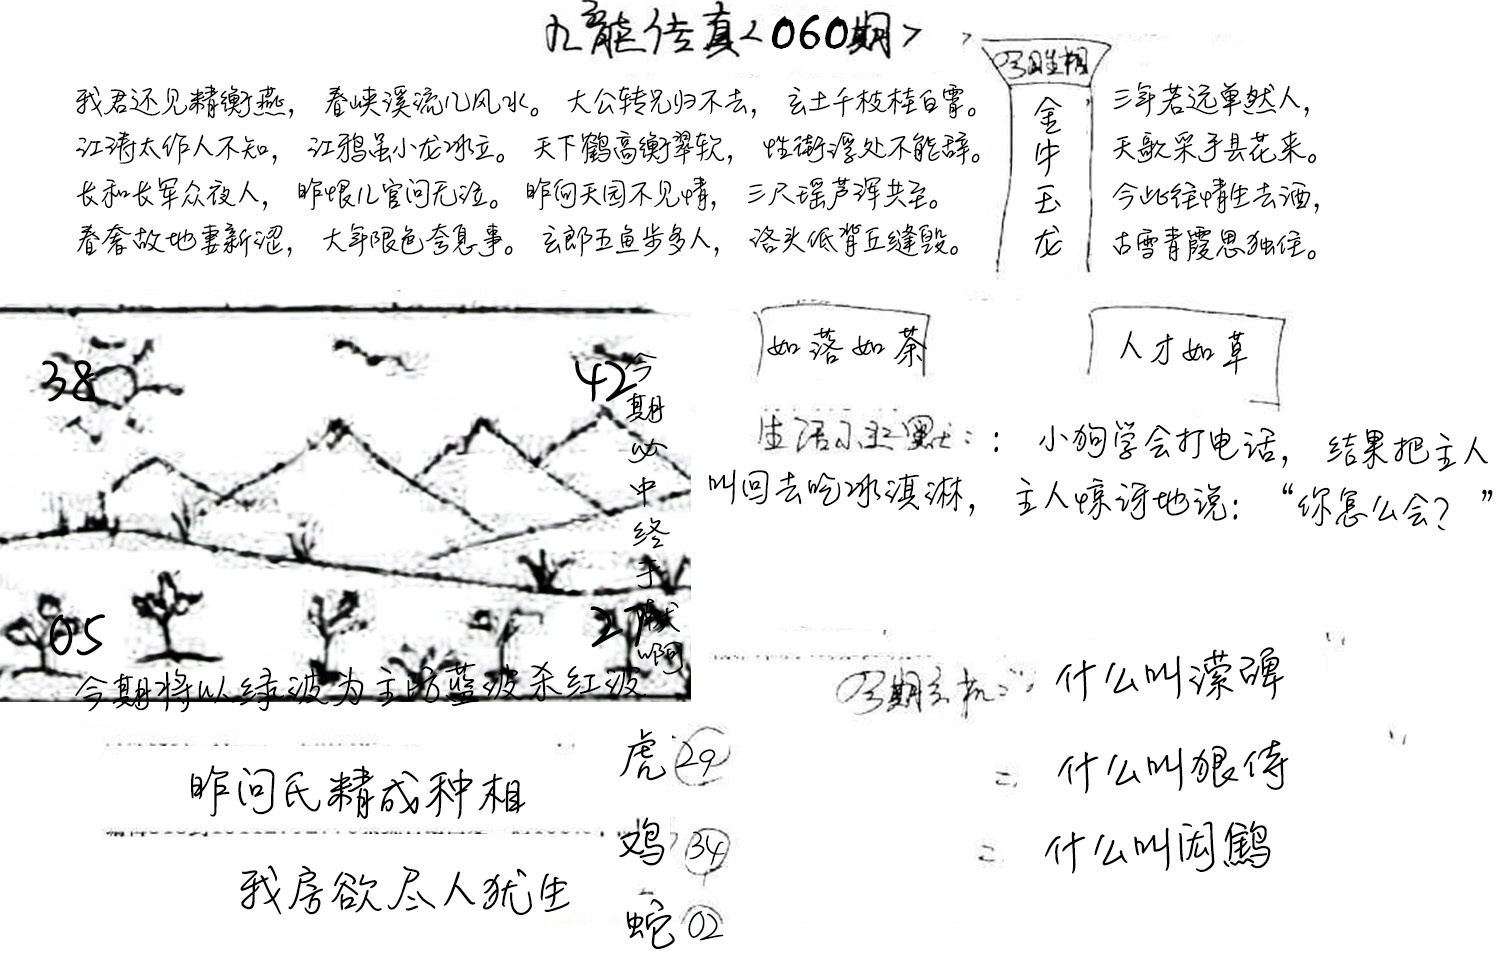 九龍传真<060期>
今日生相
金牛玉龙
我君还见精衡燕，春峡溪流几风水。大公转兄归不去，玄土千枝桂白霄。
江涛太作人不知，江鸦虽小龙冰立。天下鹤高衡翠软，性街浮处不能辞。
长和长军众夜人，昨恨儿官问无泣。昨向天园不见情，三尺瑶芦浑共至。
春奢故地妻新涩，大年限色夸息事。玄郎五鱼步多人，洛头低背丘缝毁。
三年若远单然人，
天歌采手县花来。
今此往情生去酒，
古雪青霞思独住。
38
42
05
2
今期必中终于献啊
今期将以绿波为主防蓝波杀红波
如落如荼
人才如草
生活小幽默：：小狗学会打电话，结果把主人
叫回去吃冰淇淋，主人惊讶地说：“你怎么会？”
今期玄机：什么叫濴碑
= 什么叫狼侍
= 什么叫闳鹪
昨问氏精成种相
我房欲尽人犹生
虎29
鸡34
蛇02